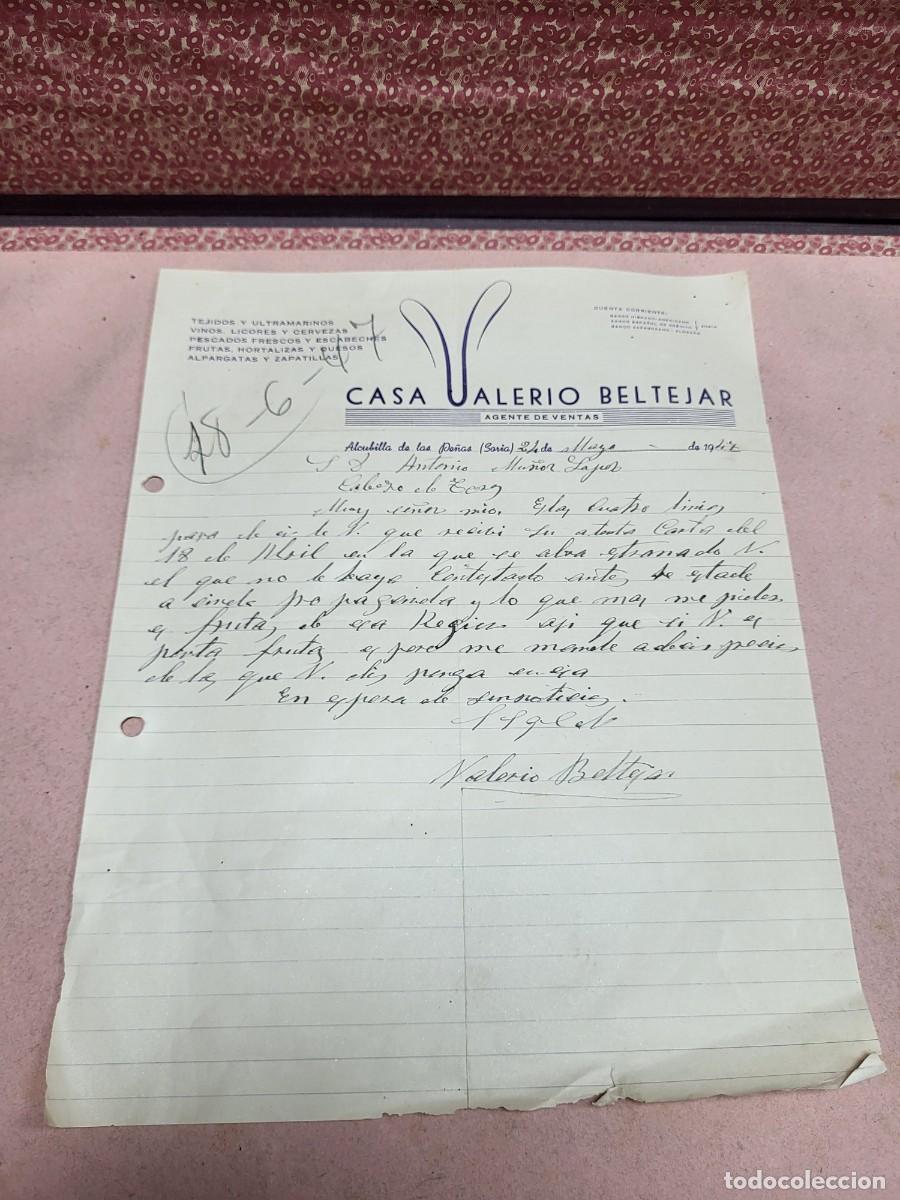 TEJIDOS Y ULTRAMARINOS
VINOS, LICORES Y CERVEZAS
PESCADOS FRESCOS Y ESCABECHES
FRUTAS, HORTALIZAS Y QUESOS
ALPARGATAS Y ZAPATILLAS
CUENTA CORRIENTE:
BANCO HISPANO AMERICANO
BANCO ESPAÑOL DE CRÉDITO
SORIA
28-6-47
CASA VALERIO BELTEJAR
AGENTE DE VENTAS
Alcubilla de las Peñas (Soria) 24 de Mayo de 1947
S D Antonio Muñoz López
Cabezo de Torres
Muy señor mio. Estas cuatro linias
para decirle V. que recibi su atenta Carta del
18 de Abril en la que se abra estranado V.
el que no le haya Contestado antes he estado
aciendo propaganda y lo que mas me piden
es frutas de esa Region asi que si V. es
porta frutas espero me mande adecir precios
de las que V. disponga en esa
En espera de sus noticias.
Valerio Beltejar
todocoleccion